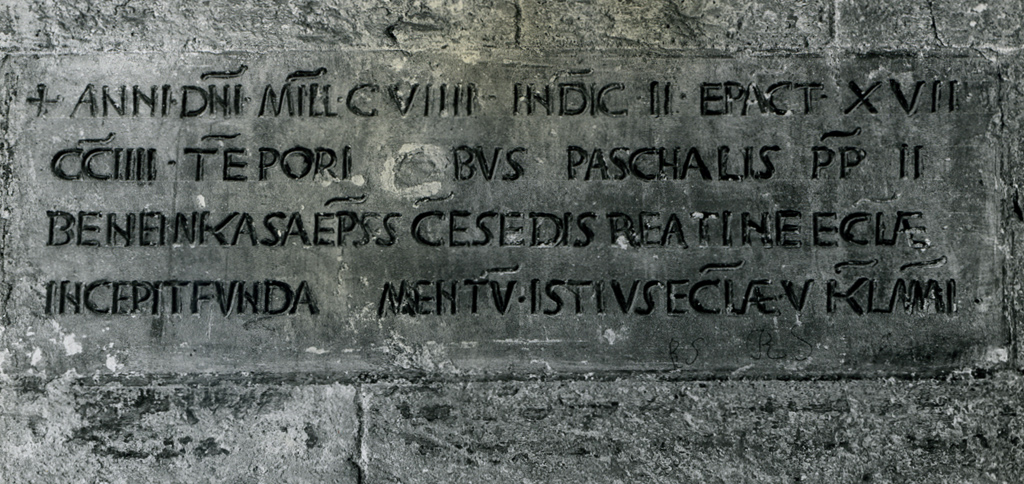 + ANNI·DN̄I·MIL̄L·C VIIII· IND̄IC·II· EPACT· XVII
CC̄IIII·TĒPORI BVS PASCHALIS P̄P II
BENEINKASAEP̄SS C̄ESEDIS REATINEECLÆ
INCEPITFVNDA MENTV̄·ISTIVSEC̄LÆ·V K̄L̄M̄I